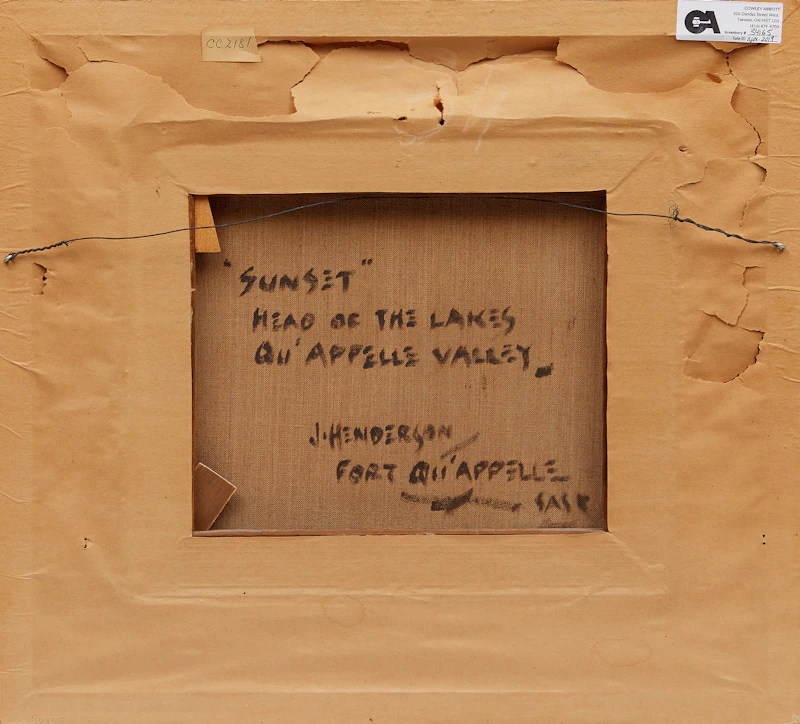 CC2181
COWLEY ABBOTT
326 Dundas Street West
Toronto, ON M5T 1G5
(416) 479-9703
Inventory #
Sale ID
"SUNSET"
HEAD OF THE LAKES
QU'APPELLE VALLEY.
J. HENDERSON
FORT QU'APPELLE
SASK